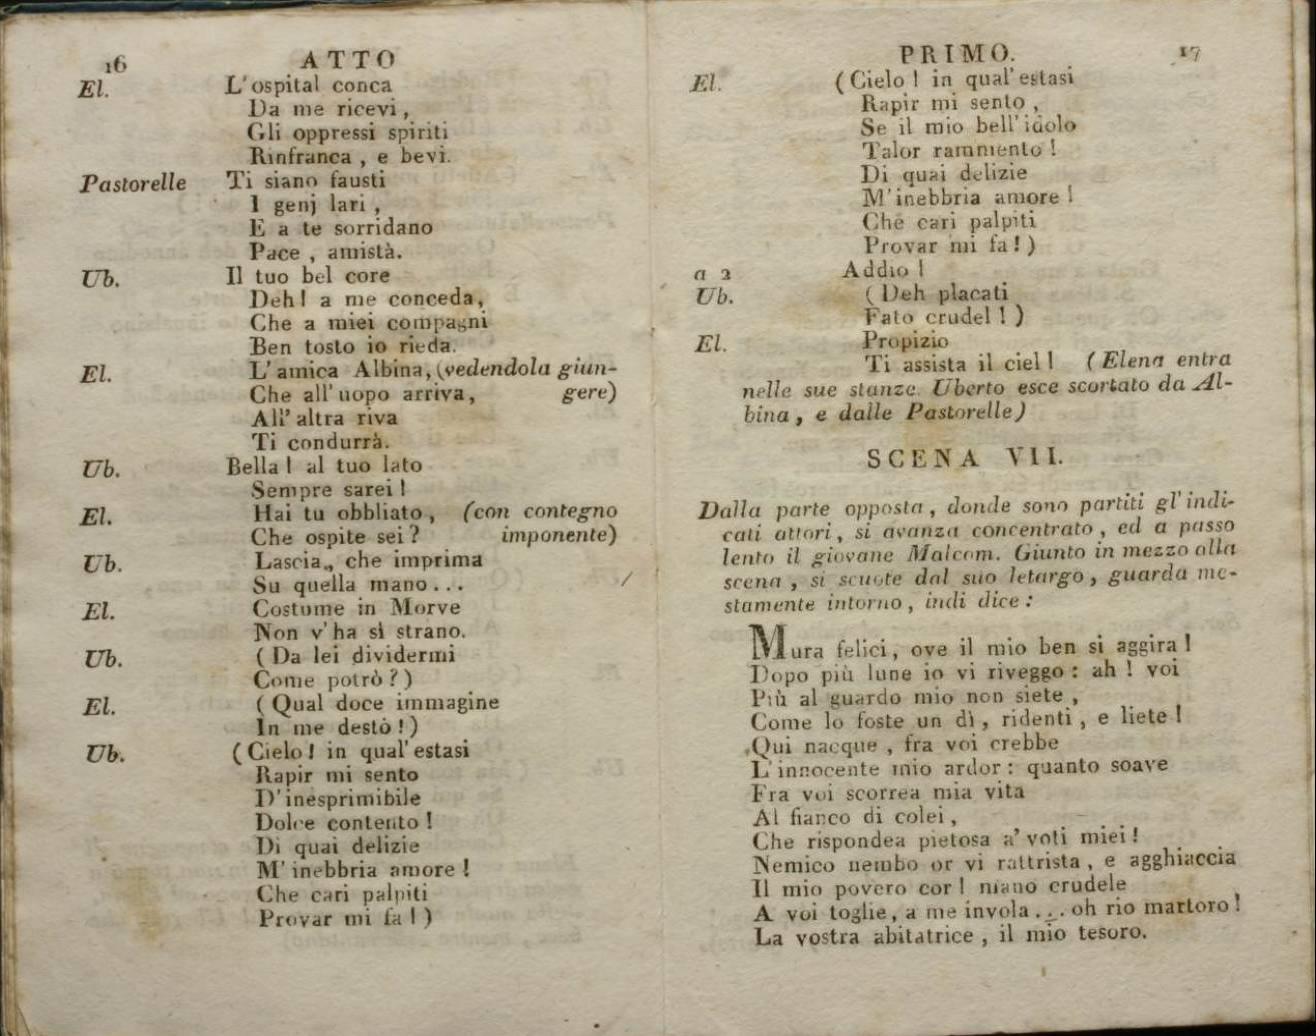 16 ATTO
El. L'ospital conca
Da me ricevi,
Gli oppressi spiriti
Rinfranca, e bevi.
Pastorelle Ti siano fausti
I genj lari,
E a te sorridano
Pace, amistà.
Ub. Il tuo bel core
Deh! a me conceda,
Che a miei compagni
Ben tosto io rieda.
El. L'amica Albina, (vedendola giun-
Che all'uopo arriva, gere)
All'altra riva
Ti condurrà.
Ub. Bella! al tuo lato
Sempre sarei!
El. Hai tu obbliato, (con contegno
Che ospite sei? imponente)
Ub. Lascia,, che imprima
Su quella mano...
El. Costume in Morve
Non v'ha sì strano.
Ub. (Da lei dividermi
Come potrò?)
El. (Qual doce immagine
In me destò!)
Ub. (Cielo! in qual'estasi
Rapir mi sento
D'inesprimibile
Dolce contento!
Di quai delizie
M'inebbria amore!
Che cari palpiti
Provar mi fa!)
PRIMO. 17
El. (Cielo! in qual'estasi
Rapir mi sento,
Se il mio bell'idolo
Talor rammento!
Di quai delizie
M'inebbria amore!
Che cari palpiti
Provar mi fa!)
a 2 Addio!
Ub. (Deh placati
Fato crudel!)
El. Propizio
Ti assista il ciel! (Elena entra
nelle sue stanze. Uberto esce scortato da Al-
bina, e dalle Pastorelle)
SCENA VII.
Dalla parte opposta, donde sono partiti gl'indi-
cati attori, si avanza concentrato, ed a passo
lento il giovane Malcom. Giunto in mezzo alla
scena, si scuote dal suo letargo, guarda me-
stamente intorno, indi dice:
Mura felici, ove il mio ben si aggira!
Dopo più lune io vi riveggo: ah! voi
Più al guardo mio non siete,
Come lo foste un dì, ridenti, e liete!
Qui nacque, fra voi crebbe
L'innocente mio ardor: quanto soave
Fra voi scorrea mia vita
Al fianco di colei,
Che rispondea pietosa a'voti miei!
Nemico nembo or vi rattrista, e agghiaccia
Il mio povero cor! mano crudele
A voi toglie, a me invola... oh rio martoro!
La vostra abitatrice, il mio tesoro.